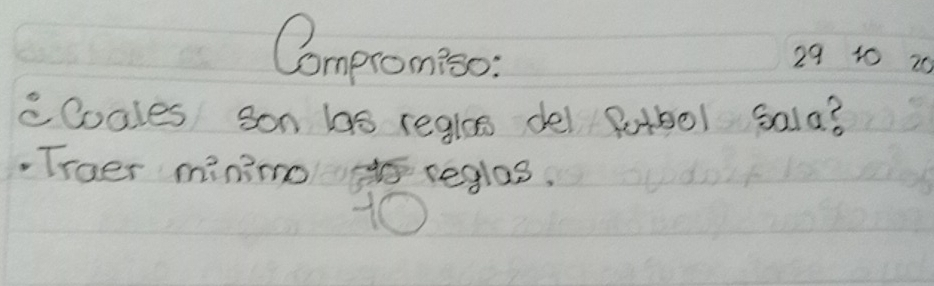 Compromiso:
29 10 20
¿Coales son las reglas del futbol sala?
• Traer minimo reglas.
10